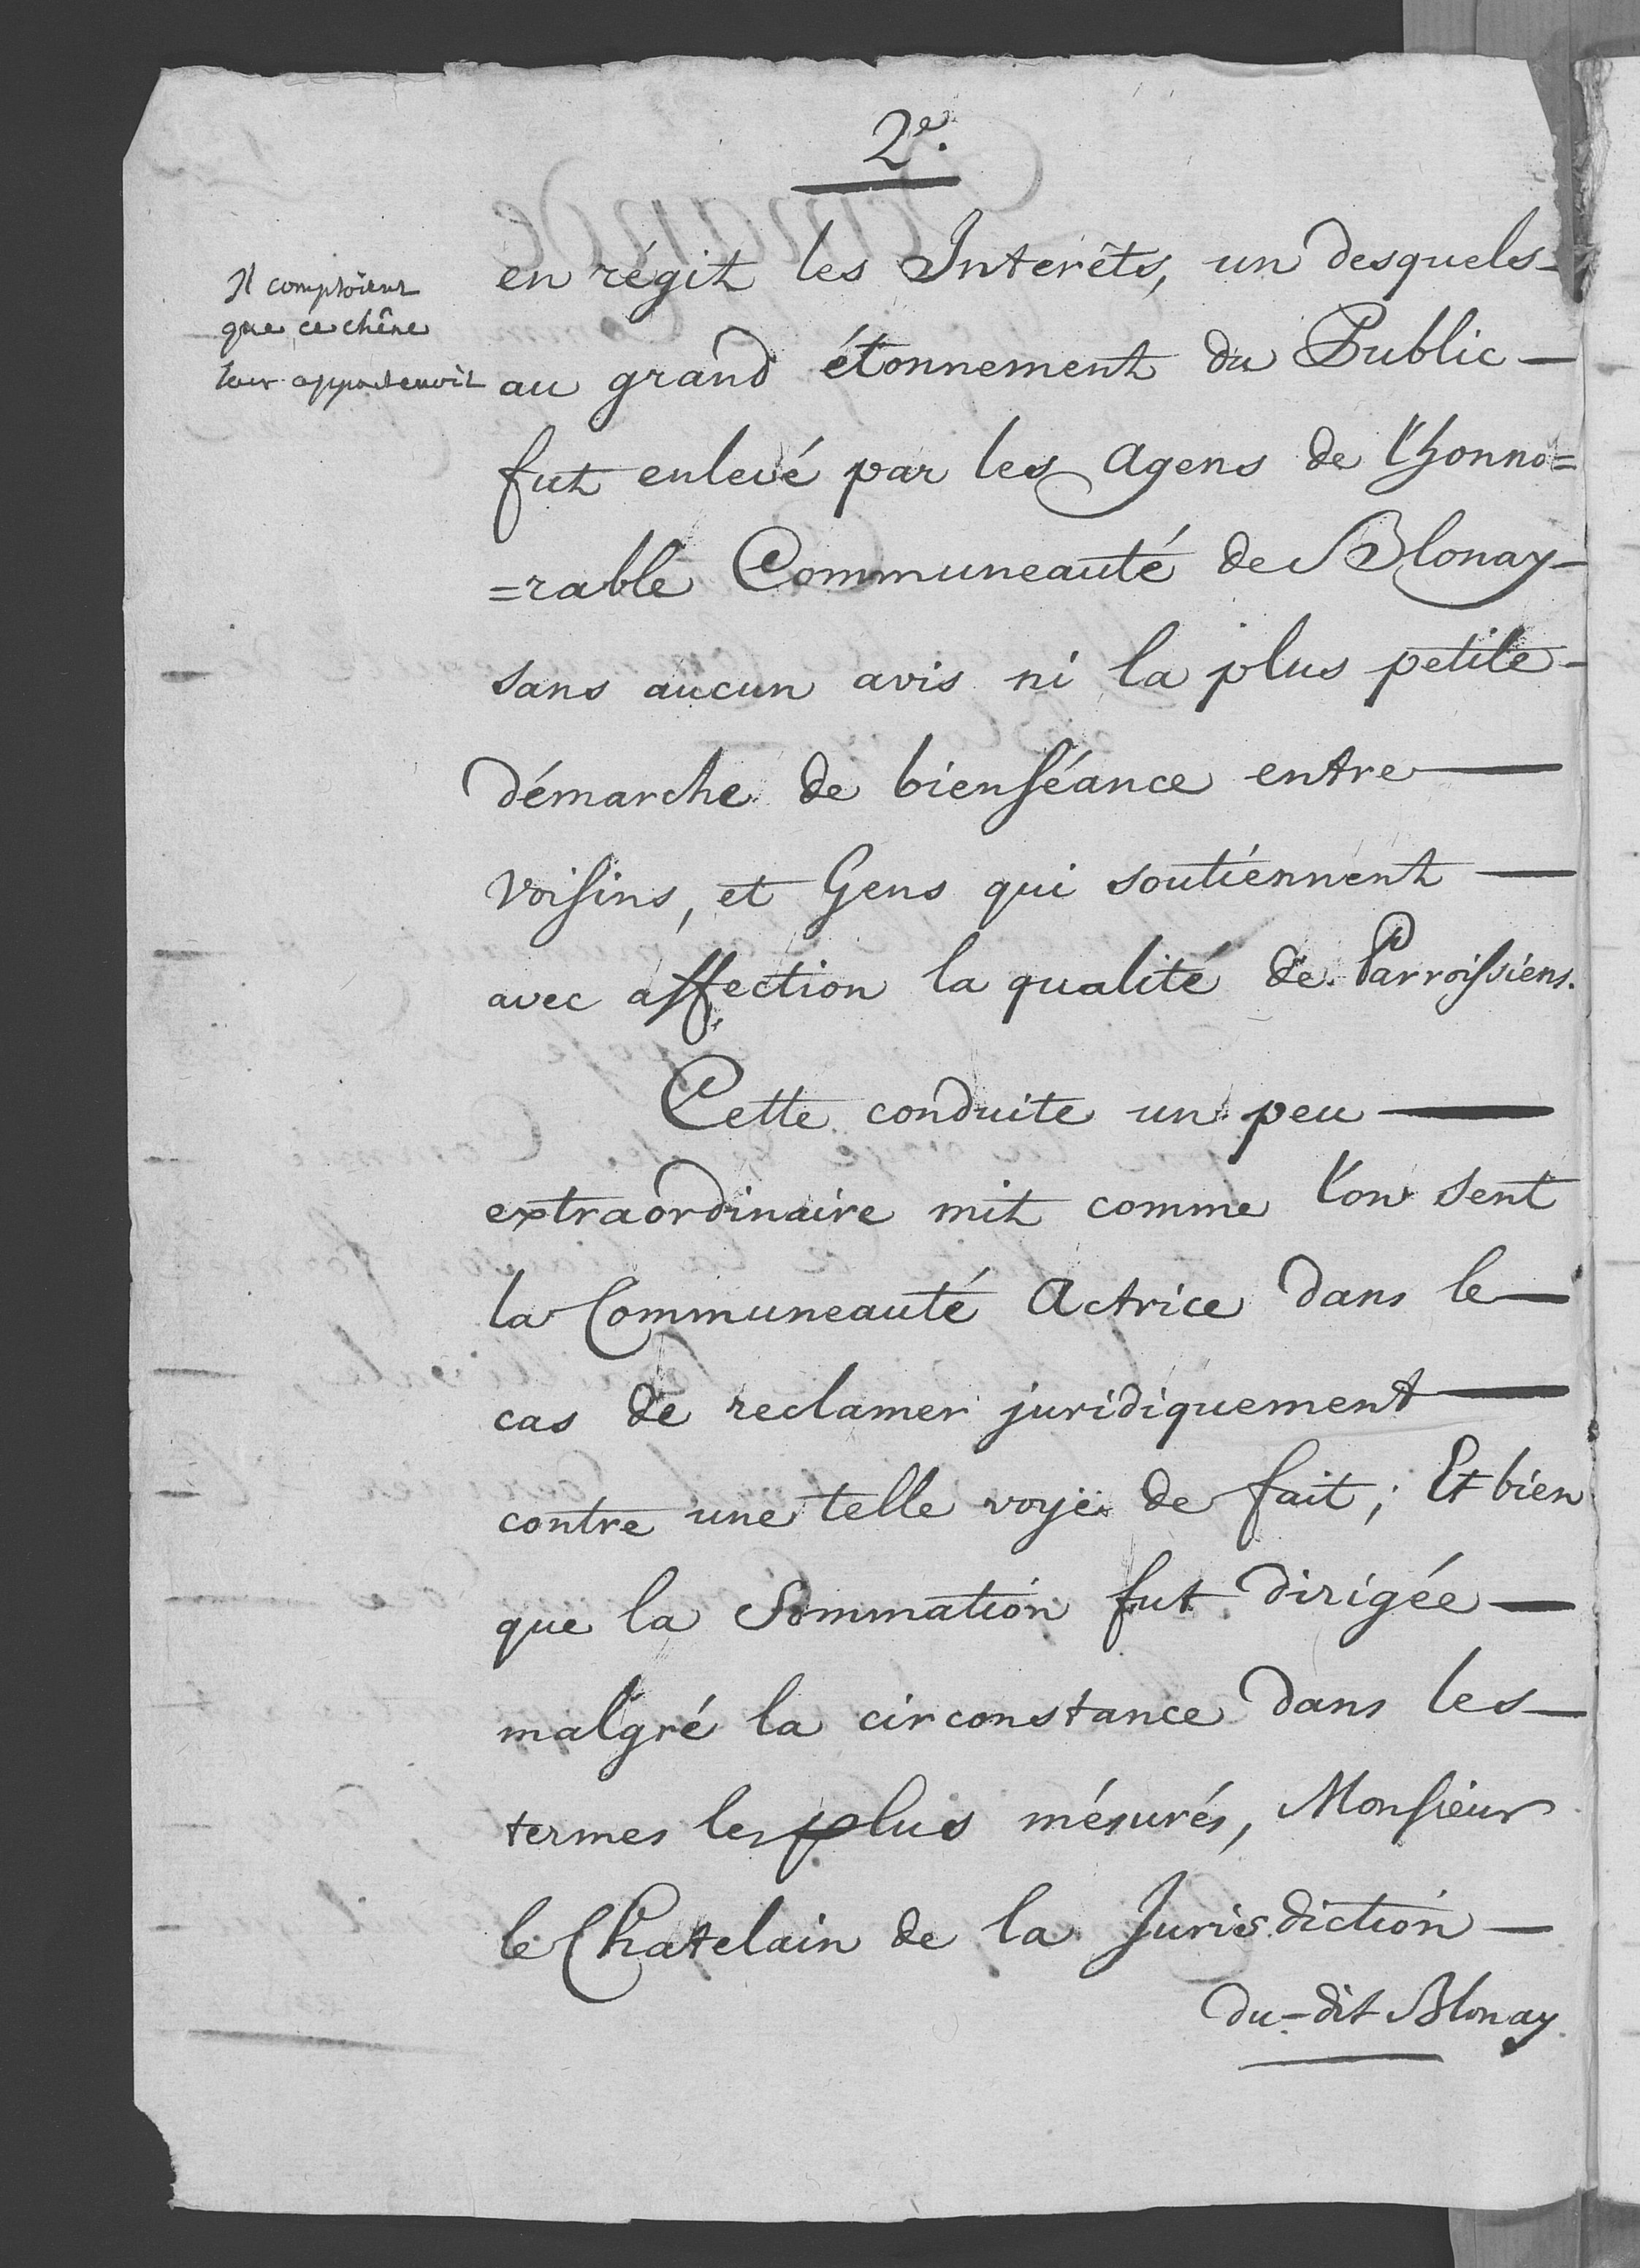 2e.
Il comptoient
que ce chêne
leur appartenoit
en régit les Interêts, un desquels
au grand étonnement du Public
fut enlevé par les Agens de l'honno=
=rable Communeauté de Blonay
sans aucun avis ni la plus petite
démarche de bienséance entre
voisins, et Gens qui soutiennent
avec affection la qualité de Parroissiens.
Cette conduite un peu
extraordinaire mit comme l'on sent
la Communeauté Actrice dans le
cas de reclamer juridiquement
contre une telle voye de fait; Et bien
que la Sommation fut dirigée
malgré la circonstance dans les
termes les plus mésurés, Monsieur
le Chatelain de la Jurisdiction
du-dit Blonay